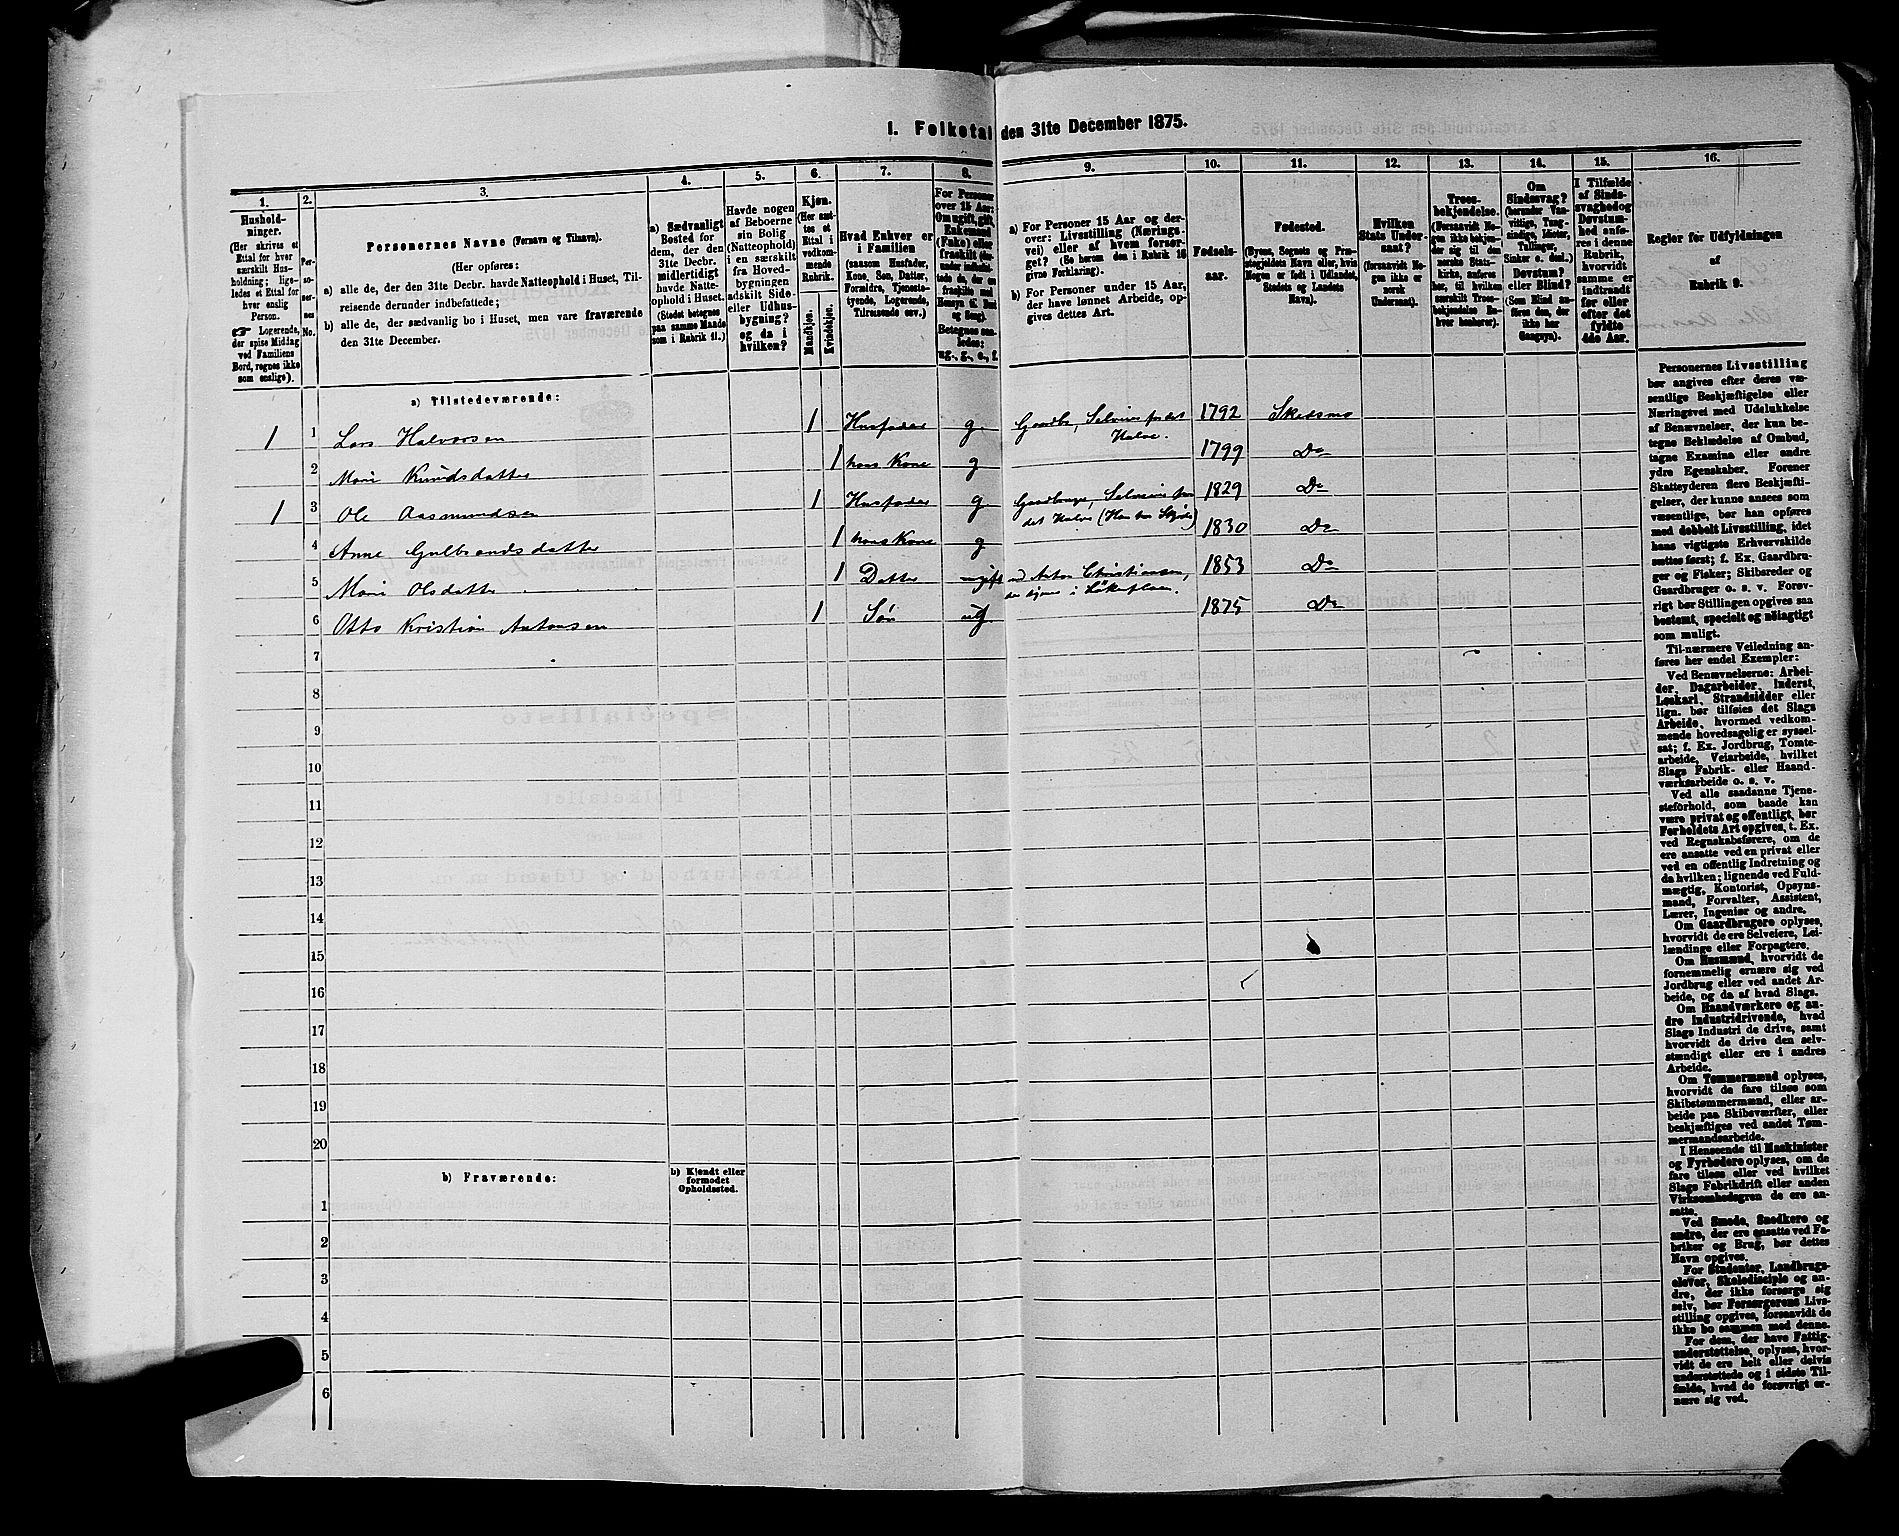 I. Folketal den 31te December 1875.
1. 2. 3. 4. 5. 6. 7. 8. 9. 10. 11. 12. 13. 14. 15. 16.
Hushold-
ninger.
(Her skrives et
Ettal for hver
særskilt Hus-
holdning; lige-
ledes et Ettal for
hver enslig
Person.
☞ Logerende,
der spise Middag
ved Familiens
Bord, regnes ikke
som enslige).
Per-
so-
ner-
nes
No.
Personernes Navne (Fornavn og Tilnavn).
(Her opføres:
a) alle de, der den 31te Decbr. havde Natteophold i Huset, Til-
reisende derunder indbefattede;
b) alle de, der sædvanlig bo i Huset, men vare fraværende
den 31te December.
a) Sædvanligt
Bosted for
dem, der den
31te Decbr.
midlertidigt
havde Natte-
ophold i Huset.
(Stedet betegnes
paa samme Maade
som i Rubrik 11.)
Havde nogen
af Beboerne
sin Bolig
(Natteophold)
i en særskilt
fra Hoved-
bygningen
adskilt Side-
eller Udhus-
bygning?
og da i
hvilken?
Kjøn.
(Her sæt-
tes et
Ettal i
vedkom-
mende
Rubrik.
Mandkjøn.
Kvindekjøn.
Hvad Enhver er
i Familien
(saasom Husfader,
Kone, Søn, Datter,
Forældre, Tjeneste-
tyende, Logerende,
Tilreisende osv.)
For Personer
over 15 Aar:
Om ugift, gift,
Enkemand
(Enke) eller
fraskilt
Betegnes saa-
ledes:
ug., g., e., f.
a) For Personer 15 Aar og der-
over: Livsstilling (Nærings-
vei) eller af hvem forsør-
get? (Se herom den i Rubrik 16
givne Forklaring).
b) For Personer under 15 Aar,
der have lønnet Arbeide, op-
gives dettes Art.
Fødsels-
aar.
Fødested.
(Byens, Sognets og Præ-
stegjeldets Navn eller, hvis
Nogen er født i Udlandet,
Stedets og Landets
Navn).
Hvilken
Stats Under-
saat?
(forsaavidt No-
gen ikke er
norsk
Undersaat).
Troes-
bekjendelse.
(Forsaavidt No-
gen ikke bekjen-
der sig til den
norske Stats-
kirke, anføres
her, til hvilken
særskilt Troes-
bekjendelse En-
hver henhører).
Om
Sindssvag?
eller Blind?
Døvstum?
I Tilfælde
af Sinds-
svaghed og
Døvstum-
hed anfø-
res i denne
Rubrik,
hvorvidt
samme er
indtraadt
før eller
efter det
fyldte
4de Aar.
Regler for Udfyldningen
af
Rubrik 9.
a) Tilstedeværende:
1 1 Lars Halvorsen 1 Husfader g. Gaardb., Selveier for det Halve. 1792 Skedsmo
2 Mari Knudsdatter 1 hans Kone g 1799 Do
1 3 Ole Aasmundsen 1 Husfader g Gaardbruger, Selveier for det Halve 1829 Do
4 Anne Gulbrandsdatter 1 hans Kone g 1830 Do
5 Mari Olsdatter 1 Datter ugift 1853 Do
6 Otto Kristian Antonsen 1 Søn ug 1875 Do
7
8
9
10
11
12
13
14
15
16
17
18
19
20
b) Fraværende:
b) Kjendt eller
formodet
Opholdssted.
1
2
3
4
5
6
Personernes Livsstilling
bør angives efter deres væ-
sentlige Beskjæftigelse eller
Næringsvei med Udelukkelse
af Benævnelser, der kun be-
tegne Beklædelse af Ombud,
tagne Examina eller andre
ydre Egenskaber. Forener
Skatteyderen flere Beskjæfti-
gelser, der kunne ansees som
væsentlige, bør han opføres
med dobbelt Livsstilling, idet
hans vigtigste Erhvervskilde
sættes først; f. Ex. Gaardbru-
ger og Fisker; Skibsreder og
Gaardbruger o. s. v. Forøv-
rigt bør Stillingen opgives saa
bestemt, specielt og nøiagtigt
som muligt.
Til nærmere Veiledning an-
føres her endel Exempler:
Ved Benævnelserne: Arbei-
der, Dagarbeider, Inderst,
Løskarl, Strandsidder eller
lign. bør tilføies det Slags
Arbeide, hvormed vedkom-
mende hovedsagelig er syssel-
sat; f. Ex. Jordbrug, Tomte-
arbeide, Veiarbeide, hvilket
Slags Fabrik- eller Haand-
værksarbeide o. s. v.
Ved alle saadanne Tjene-
steforhold, som baade kan
være privat og offentligt, bør
Forholdets Art opgives, t. Ex.
ved Regnskabsførere, om de
ere ansatte ved en privat eller
ved en offentlig Indretning og
da hvilken; lignende ved Fuld-
mægtig, Kontorist, Opsyns-
mand, Forvalter, Assistent,
Lærer, Ingeniør og andre.
Om Gaardbrugere oplyses,
hvorvidt de ere Selveiere, Lei-
lændinge eller Forpagtere.
Om Husmænd, hvorvidt de
fornemmelig ernære sig ved
Jordbrug eller ved andet Ar-
beide, og da af hvad Slags.
Om Haandværkere og an-
dre Industridrivende, hvad
Slags Industri de drive, samt
hvorvidt de drive den selv-
stændigt eller ere i andres
Arbeide.
Om Tømmermænd oplyses,
hvorvidt de fare tilsøs som
Skibstømmermænd, eller ar-
beide paa Skibsværfter, eller
beskjæftiges ved andet Tøm-
mermandsarbeide.
I Henseende til Maskinister
og Fyrbødere oplyses, om de
fare tilsøs eller ved hvilket
Slags Fabrikdrift eller anden
Virksomhed de ere an-
satte.
Ved Smede, Snedkere og
andre, der ere ansatte ved Fa-
briker og Brug, bør dettes
Navn opgives.
For Studenter, Landbrugs-
elever, Skoledisciple og an-
dre, der ikke forsørge sig
selv, bør Forsørgerens Livs-
stilling opgives, forsaavidt de
ikke bo sammen med denne.
For dem, der have Fattig-
understøttelse, oplyses, hvor-
vidt de ere helt eller delvis
understøttede og i sidste Til-
fælde, hvad de forøvrigt er-
nære sig ved.